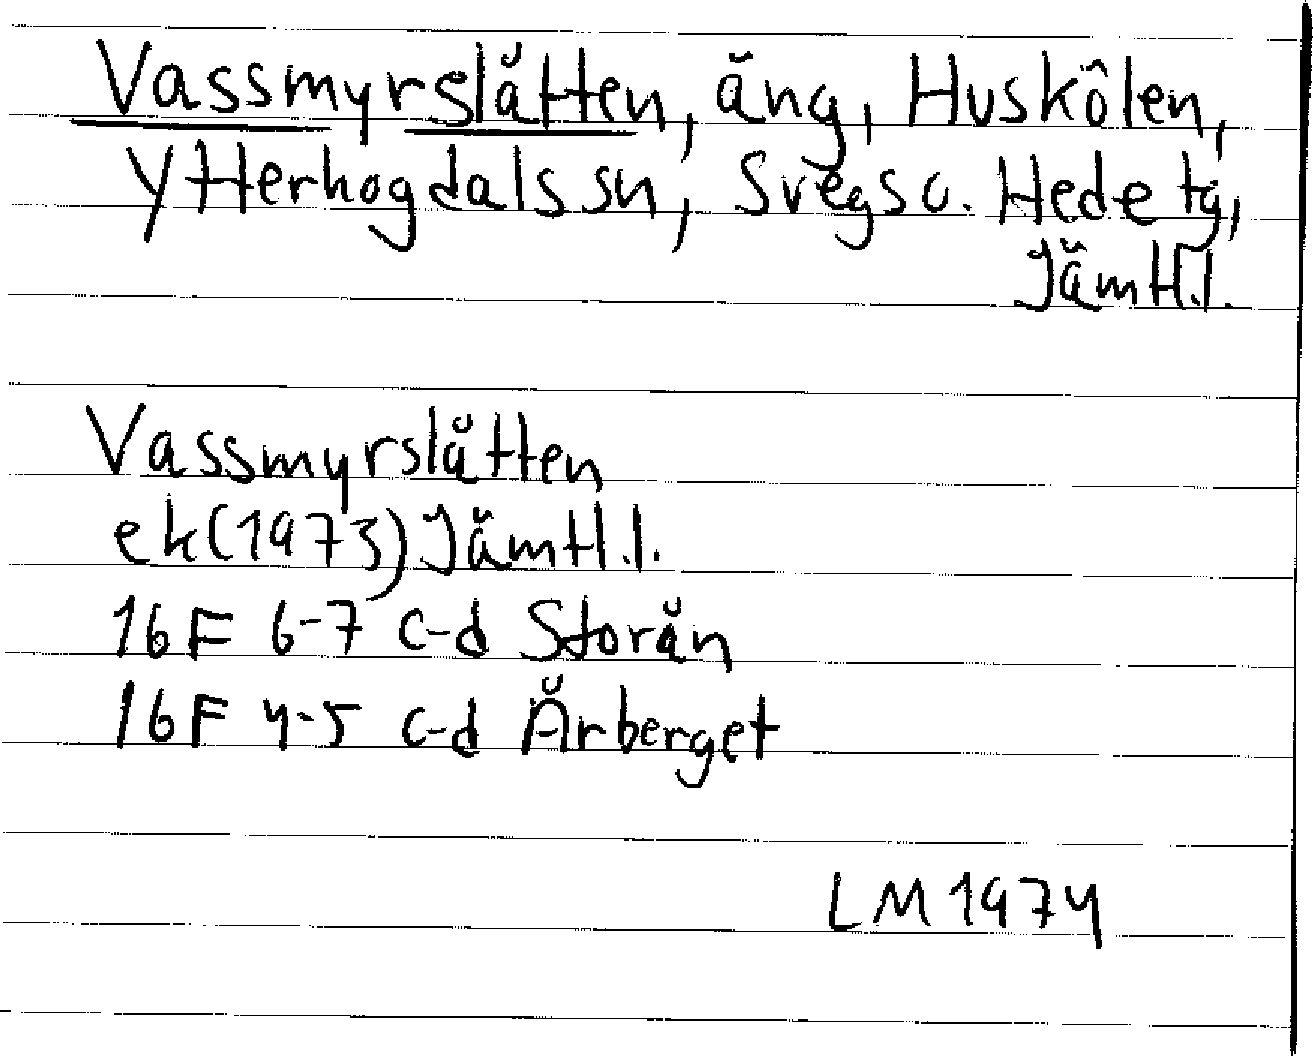 Vassmyrslåtten, äng, Huskölen,
Ytterhogdals sn, Svegs o. Hede tg,
Jämtl.l.
Vassmyrslåtten
ek (1973) Jämtl.l.
16F 6-7 c-d Storån
16F 4-5 c-d Årberget
LM 1974